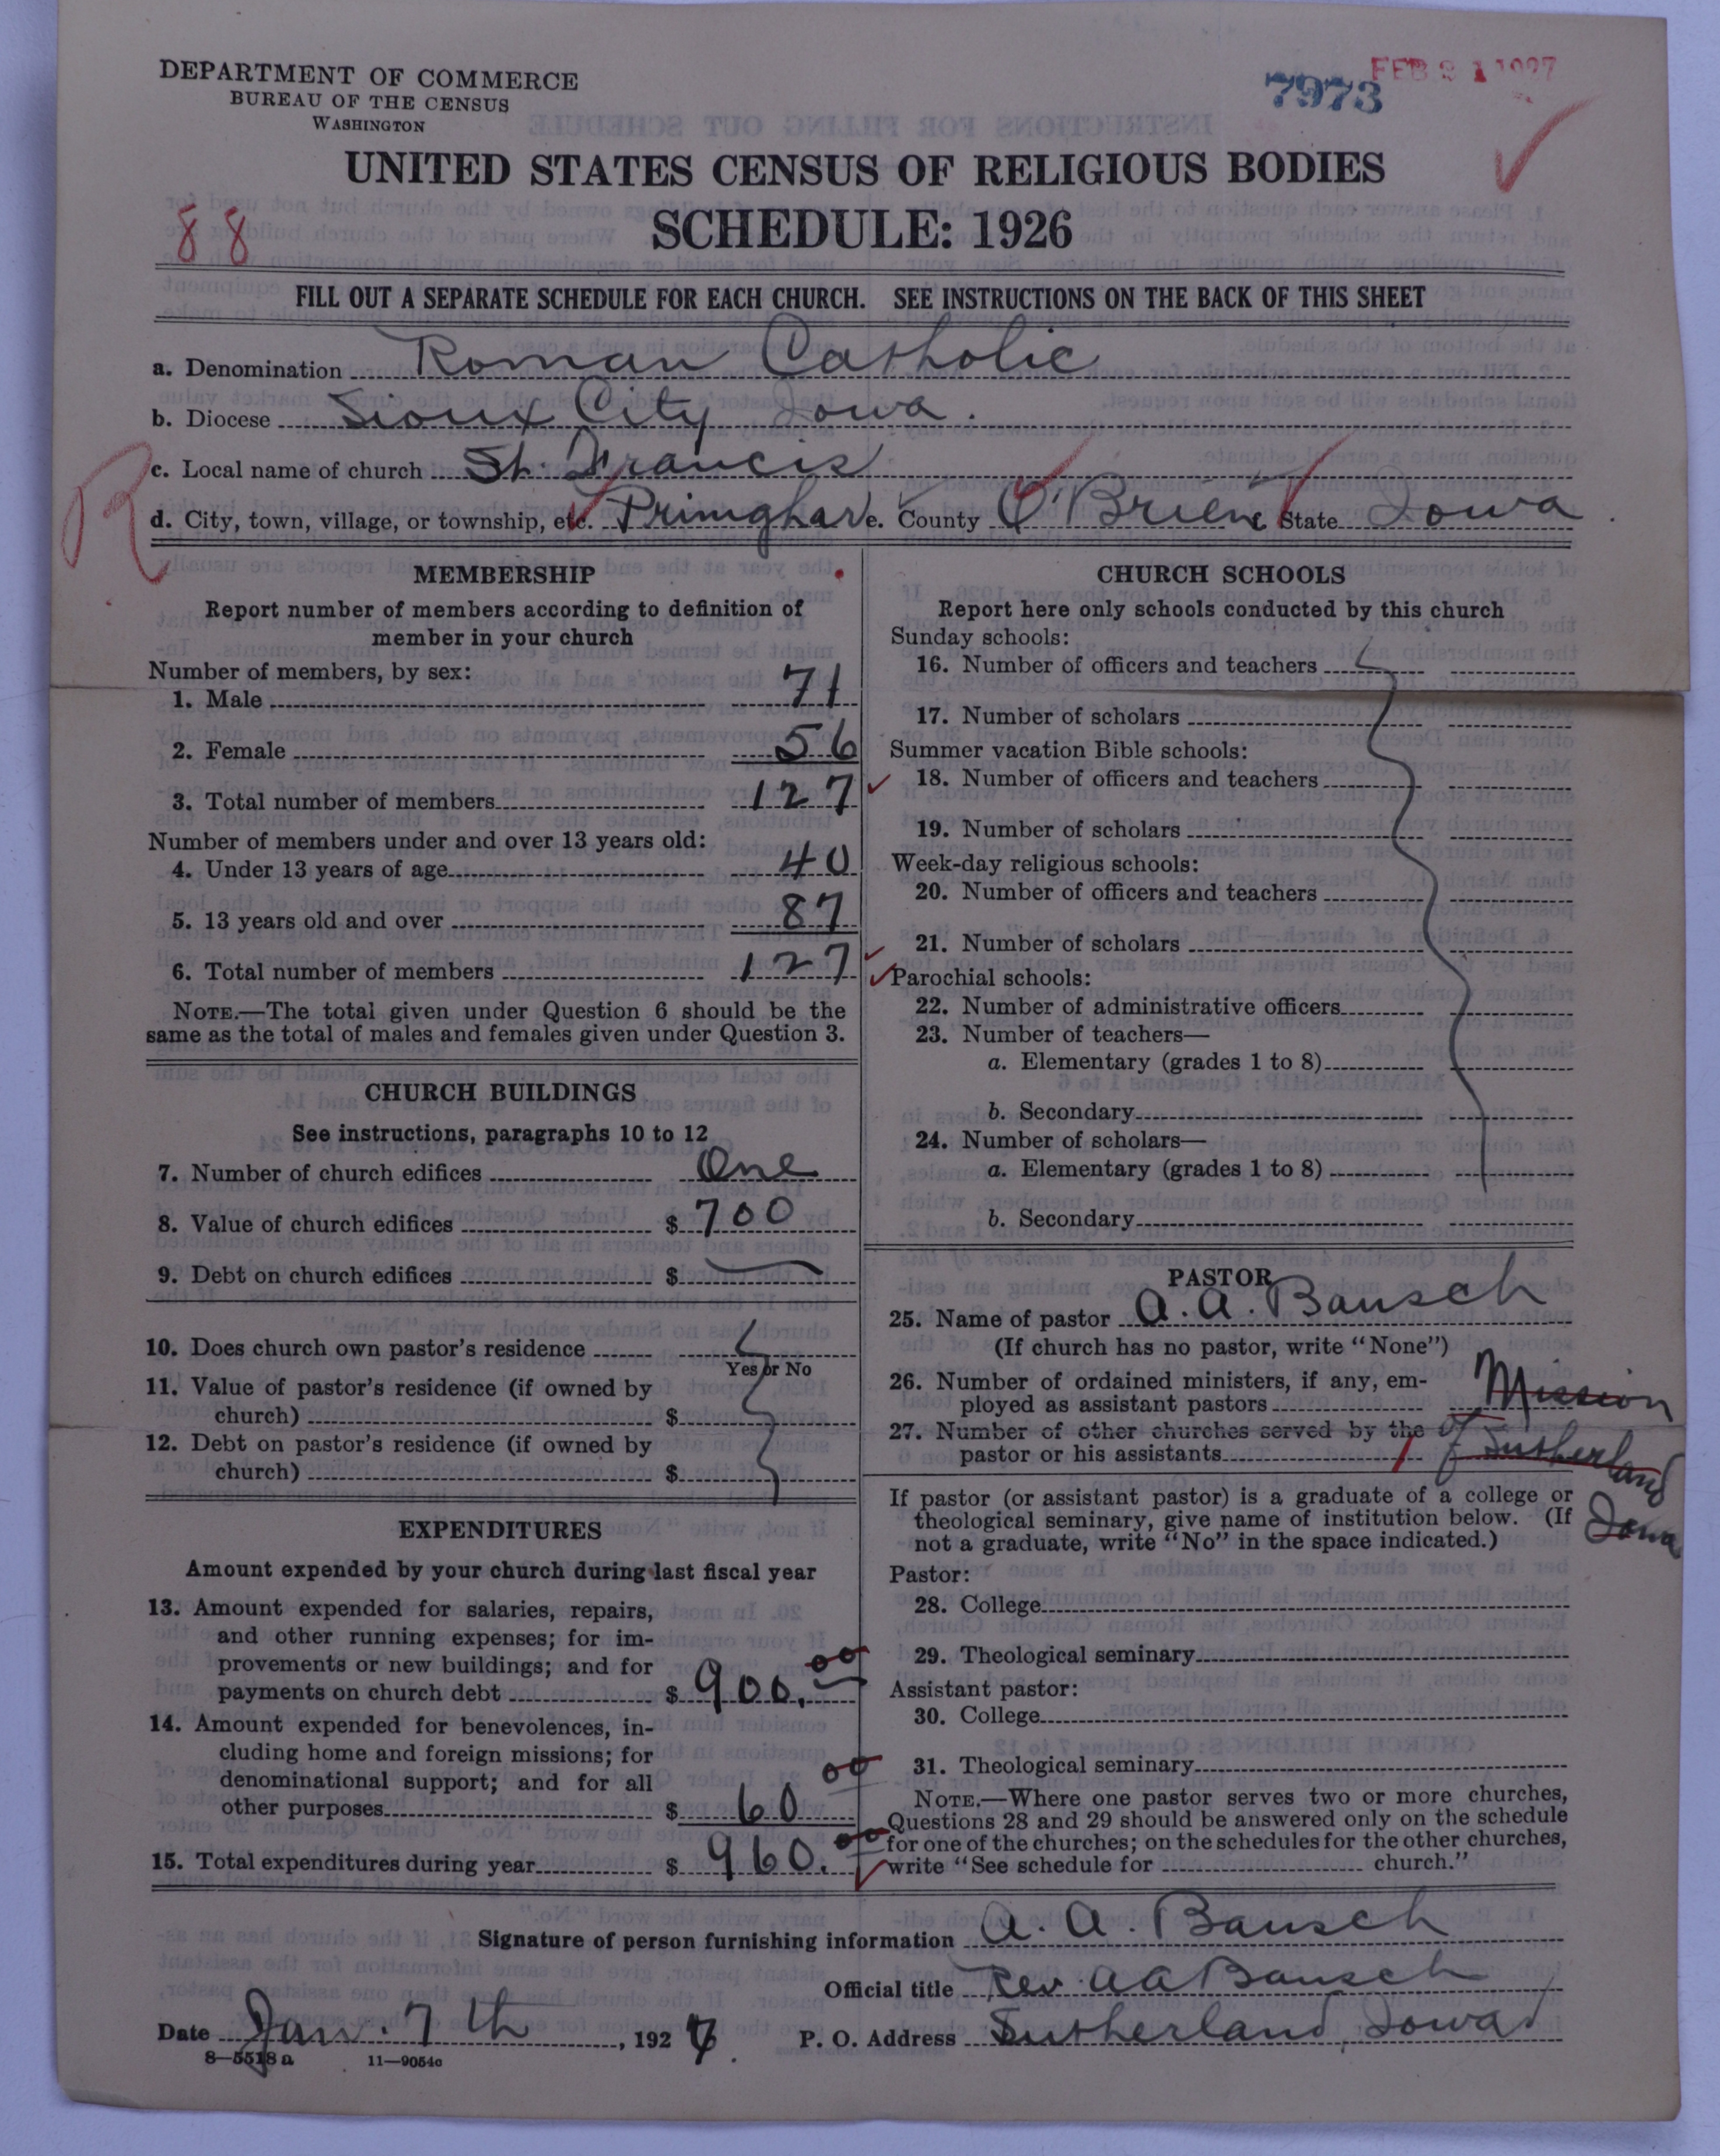 DEPARTMENT OF COMMERCE
BUREAU OF THE CENSUS
WASHINGTON
7973
FEB 21 1927
UNITED STATES CENSUS OF RELIGIOUS BODIES
88
SCHEDULE: 1926
FILL OUT A SEPARATE SCHEDULE FOR EACH CHURCH. SEE INSTRUCTIONS ON THE BACK OF THIS SHEET
a. Denomination Roman Catholic
b. Diocese Sioux City Iowa.
c. Local name of church St. Francis
R
d. City, town, village, or township, etc. Primghar e. County O'Brien State Iowa.
MEMBERSHIP
Report number of members according to definition of
member in your church
Number of members, by sex:
1. Male 71
2. Female 56
3. Total number of members 127
Number of members under and over 13 years old:
4. Under 13 years of age 40
5. 13 years old and over 87
6. Total number of members 127
NOTE.—The total given under Question 6 should be the
same as the total of males and females given under Question 3.
CHURCH BUILDINGS
See instructions, paragraphs 10 to 12
7. Number of church edifices One
8. Value of church edifices $ 700
9. Debt on church edifices $ —
10. Does church own pastor's residence
Yes or No
11. Value of pastor's residence (if owned by
church) $
12. Debt on pastor's residence (if owned by
church) $
EXPENDITURES
Amount expended by your church during last fiscal year
13. Amount expended for salaries, repairs,
and other running expenses; for im-
provements or new buildings; and for
payments on church debt $ 900.00
14. Amount expended for benevolences, in-
cluding home and foreign missions; for
denominational support; and for all
other purposes $ 60 00
15. Total expenditures during year $ 960.00
CHURCH SCHOOLS
Report here only schools conducted by this church
Sunday schools:
16. Number of officers and teachers
17. Number of scholars
Summer vacation Bible schools:
18. Number of officers and teachers
19. Number of scholars
Week-day religious schools:
20. Number of officers and teachers
21. Number of scholars
Parochial schools:
22. Number of administrative officers
23. Number of teachers—
a. Elementary (grades 1 to 8)
b. Secondary
24. Number of scholars—
a. Elementary (grades 1 to 8)
b. Secondary
PASTOR
25. Name of pastor A. A. Bausch
(If church has no pastor, write "None")
26. Number of ordained ministers, if any, em-
ployed as assistant pastors Mission
27. Number of other churches served by the of
pastor or his assistants 1 Sutherland
Iowa
If pastor (or assistant pastor) is a graduate of a college or
theological seminary, give name of institution below. (If
not a graduate, write "No" in the space indicated.)
Pastor:
28. College
29. Theological seminary
Assistant pastor:
30. College
31. Theological seminary
NOTE.—Where one pastor serves two or more churches,
Questions 28 and 29 should be answered only on the schedule
for one of the churches; on the schedules for the other churches,
write "See schedule for church."
Signature of person furnishing information A. A. Bausch
Official title Rev. A A Bausch
Date Jan. 7th, 1927. P. O. Address Sutherland, Iowa
8—5518 a 11—9054c